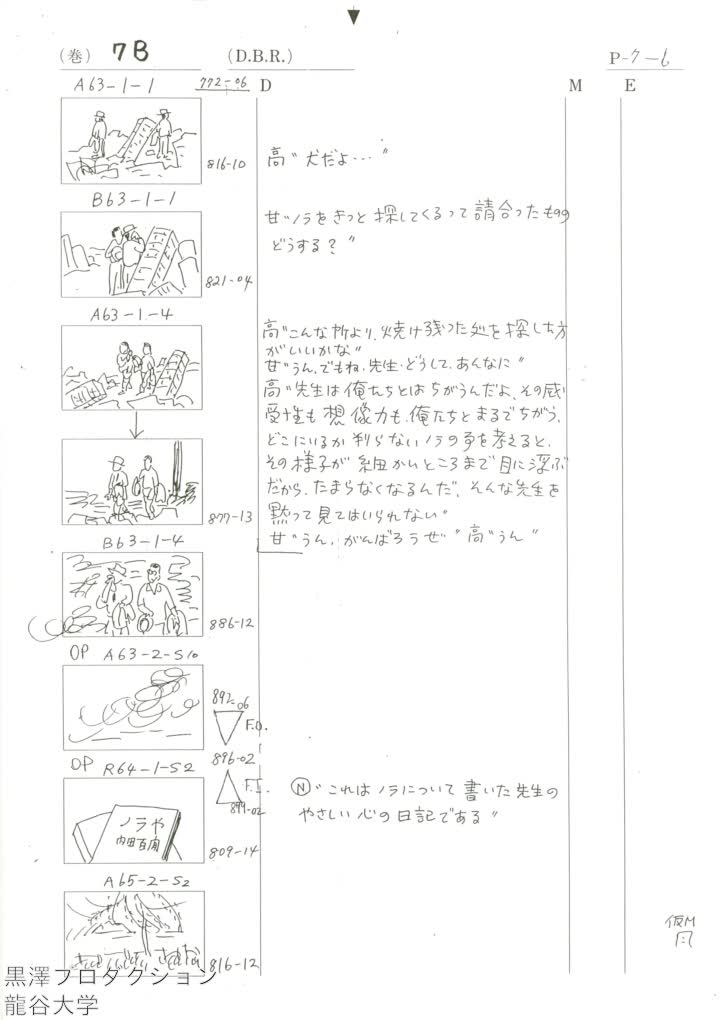 (巻) 7B (D.B.R.) P-7-6
A63-1-1 772-06 D M E
816-10 高"犬だよ…"
B63-1-1
甘"ノラをきっと探してくるって請合ったものの
どうする?"
821-04
A63-1-4
高"こんな所より、焼け残った処を探した方
がいいかな"
甘"うん、でもね、先生、どうして、あんなに"
高"先生は俺たちとはちがうんだよ、その感
受性も想像力も、俺たちとまるでちがう、
どこにいるか判らないノラの事を考えると、
その様子が細かいところまで目に浮ぶ
だから、たまらなくなるんだ、そんな先生を
877-13 黙って見てはいられない"
B63-1-4 甘"うん、がんばろうぜ" 高"うん"
886-12
OP A63-2-S10
892-06
F.O.
OP R64-1-S2 896-02
F.I.
899-02
Ⓝ"これはノラについて書いた先生の
やさしい心の日記である"
ノラや
内田百閒
809-14
A65-2-S2
仮M
816-12
黒澤プロダクション
龍谷大学